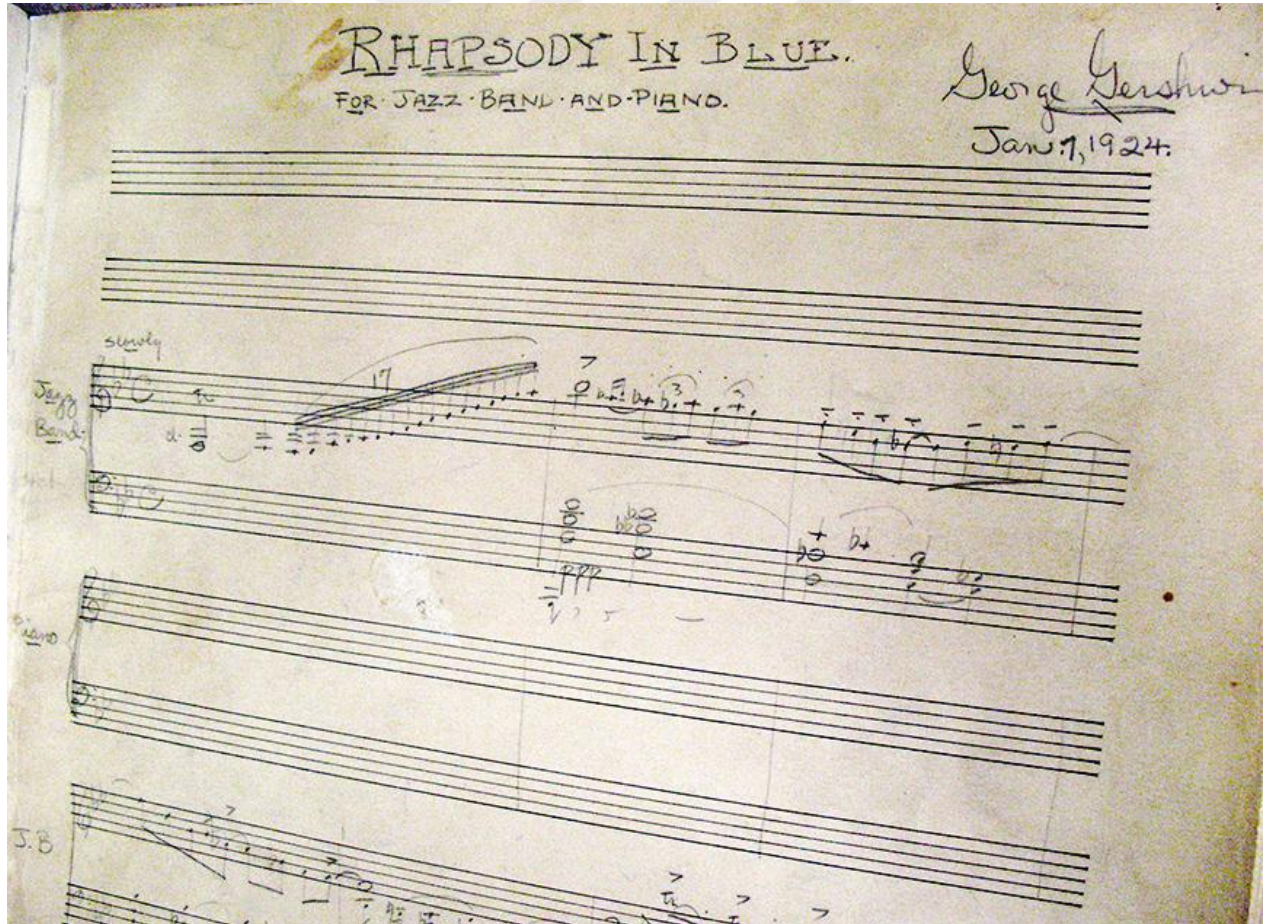 RHAPSODY IN BLUE.
FOR·JAZZ·BAND·AND·PIANO.
George Gershwin
Jan. 7, 1924.
slowly
17
Jazz
Band
3
3
ppp
Piano
J.B